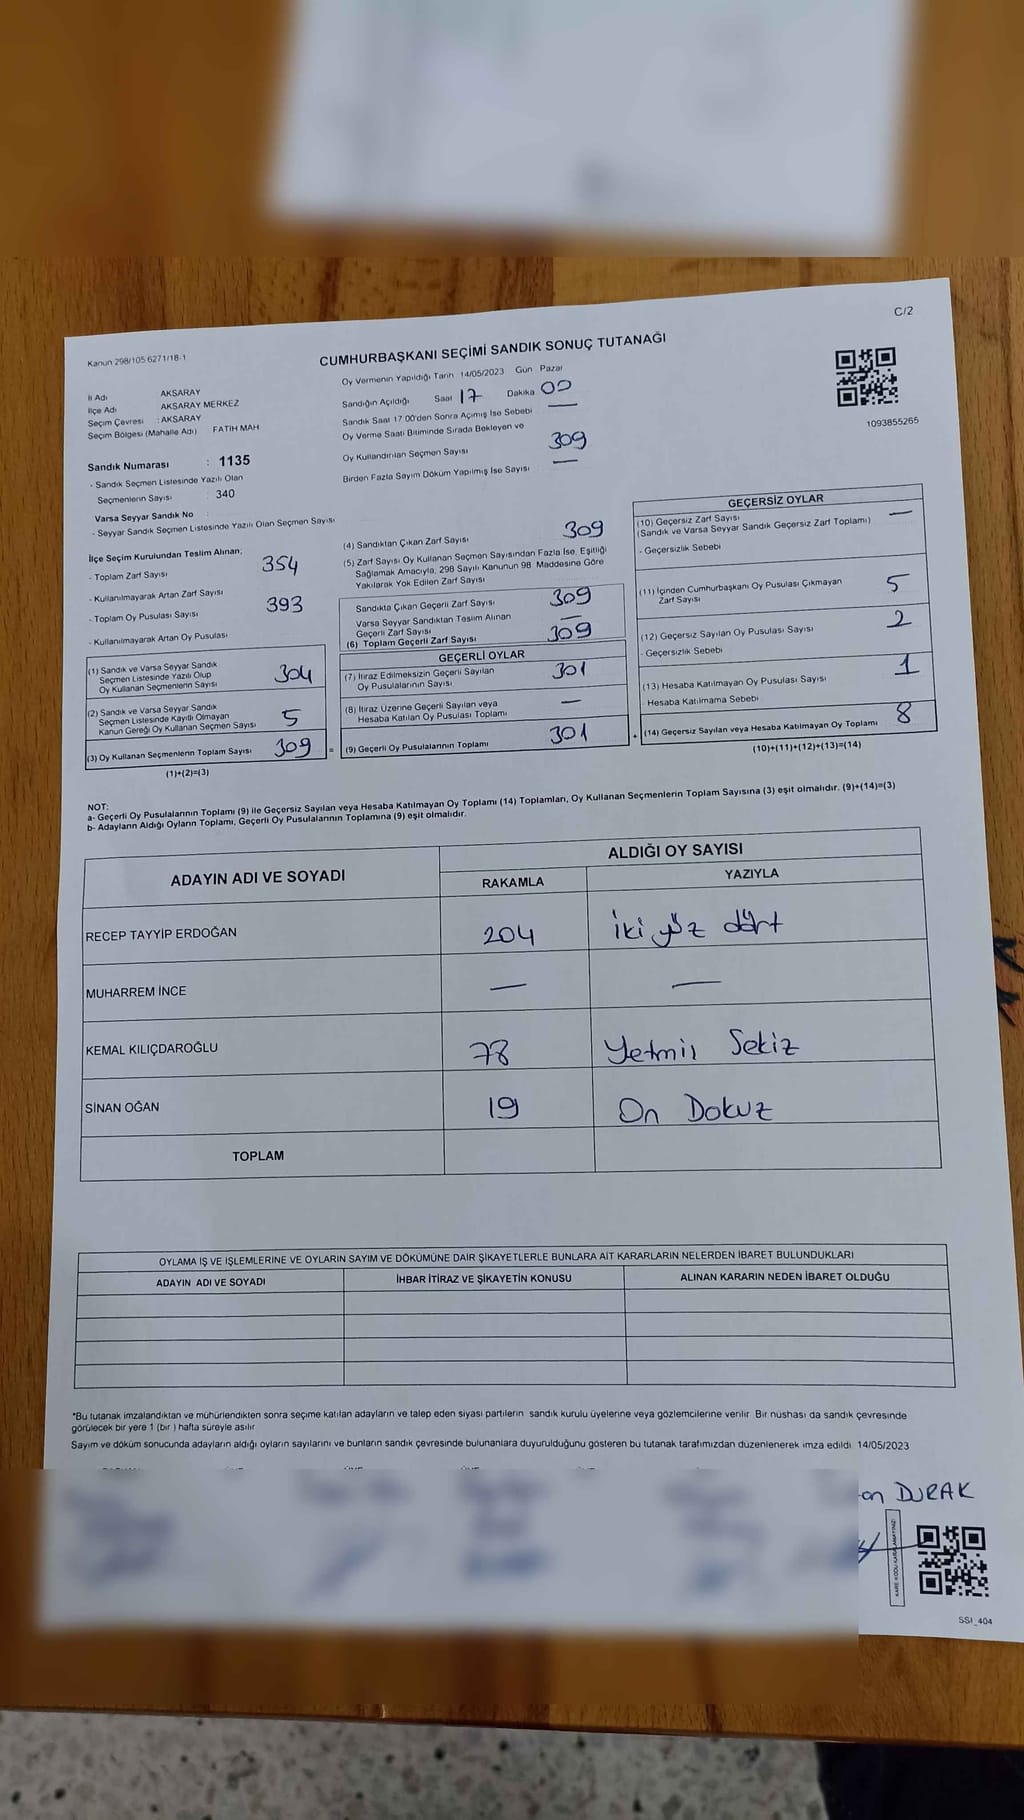 C/2
Kanun 298/105 6271/18-1
CUMHURBAŞKANI SEÇİMİ SANDIK SONUÇ TUTANAĞI
İl Adı AKSARAY
İlçe Adı AKSARAY MERKEZ
Seçim Çevresi : AKSARAY
Seçim Bölgesi (Mahalle Adı) FATİH MAH
Sandık Numarası : 1135
- Sandık Seçmen Listesinde Yazılı Olan
Seçmenlerin Sayısı : 340
Varsa Seyyar Sandık No :
- Seyyar Sandık Seçmen Listesinde Yazılı Olan Seçmen Sayısı
Oy Vermenin Yapıldığı Tarih 14/05/2023 Gün Pazar
Sandığın Açıldığı Saat 17 Dakika 00
Sandık Saat 17 00'den Sonra Açımış İse Sebebi —
Oy Verme Saati Bitiminde Sırada Bekleyen ve
Oy Kullandırılan Seçmen Sayısı 309
Birden Fazla Sayım Döküm Yapılmış İse Sayısı —
1093855265
İlçe Seçim Kurulundan Teslim Alınan;
- Toplam Zarf Sayısı 354
- Kullanılmayarak Artan Zarf Sayısı
- Toplam Oy Pusulası Sayısı 393
- Kullanılmayarak Artan Oy Pusulası
(1) Sandık ve Varsa Seyyar Sandık
Seçmen Listesinde Yazılı Olup
Oy Kullanan Seçmenlerin Sayısı 304
(2) Sandık ve Varsa Seyyar Sandık
Seçmen Listesinde Kayıtlı Olmayan
Kanun Gereği Oy Kullanan Seçmen Sayısı 5
(3) Oy Kullanan Seçmenlerin Toplam Sayısı 309
(1)+(2)=(3)
=
(4) Sandıktan Çıkan Zarf Sayısı 309
(5) Zarf Sayısı Oy Kullanan Seçmen Sayısından Fazla İse, Eşitliği
Sağlamak Amacıyla, 298 Sayılı Kanunun 98 Maddesine Göre
Yakılarak Yok Edilen Zarf Sayısı
Sandıkta Çıkan Geçerli Zarf Sayısı 309
Varsa Seyyar Sandıktan Teslim Alınan
Geçerli Zarf Sayısı —
(6) Toplam Geçerli Zarf Sayısı 309
GEÇERLİ OYLAR
(7) İtiraz Edilmeksizin Geçerli Sayılan
Oy Pusulalarının Sayısı 301
(8) İtiraz Üzerine Geçerli Sayılan veya
Hesaba Katılan Oy Pusulası Toplamı —
(9) Geçerli Oy Pusulalarının Toplamı 301
+
GEÇERSİZ OYLAR
(10) Geçersiz Zarf Sayısı —
(Sandık ve Varsa Seyyar Sandık Geçersiz Zarf Toplamı)
- Geçersizlik Sebebi
(11) İçinden Cumhurbaşkanı Oy Pusulası Çıkmayan
Zarf Sayısı 5
(12) Geçersiz Sayılan Oy Pusulası Sayısı 2
- Geçersizlik Sebebi
(13) Hesaba Katılmayan Oy Pusulası Sayısı 1
Hesaba Katılmama Sebebi
(14) Geçersiz Sayılan veya Hesaba Katılmayan Oy Toplamı 8
(10)+(11)+(12)+(13)=(14)
NOT:
a- Geçerli Oy Pusulalarının Toplamı (9) ile Geçersiz Sayılan veya Hesaba Katılmayan Oy Toplamı (14) Toplamları, Oy Kullanan Seçmenlerin Toplam Sayısına (3) eşit olmalıdır. (9)+(14)=(3)
b- Adayların Aldığı Oyların Toplamı, Geçerli Oy Pusulalarının Toplamına (9) eşit olmalıdır.
ADAYIN ADI VE SOYADI ALDIĞI OY SAYISI
RAKAMLA YAZIYLA
RECEP TAYYİP ERDOĞAN 204 İki yüz dört
MUHARREM İNCE — —
KEMAL KILIÇDAROĞLU 78 Yetmiş Sekiz
SİNAN OĞAN 19 On Dokuz
TOPLAM
OYLAMA İŞ VE İŞLEMLERİNE VE OYLARIN SAYIM VE DÖKÜMÜNE DAİR ŞİKAYETLERLE BUNLARA AİT KARARLARIN NELERDEN İBARET BULUNDUKLARI
ADAYIN ADI VE SOYADI İHBAR İTİRAZ VE ŞİKAYETİN KONUSU ALINAN KARARIN NEDEN İBARET OLDUĞU
*Bu tutanak imzalandıktan ve mühürlendikten sonra seçime katılan adayların ve talep eden siyasi partilerin sandık kurulu üyelerine veya gözlemcilerine verilir Bir nüshası da sandık çevresinde
görülecek bir yere 1 (bir ) hafta süreyle asılır
Sayım ve döküm sonucunda adayların aldığı oyların sayılarını ve bunların sandık çevresinde bulunanlara duyurulduğunu gösteren bu tutanak tarafımızdan düzenlenerek imza edildi 14/05/2023
DURAK
SSİ_404